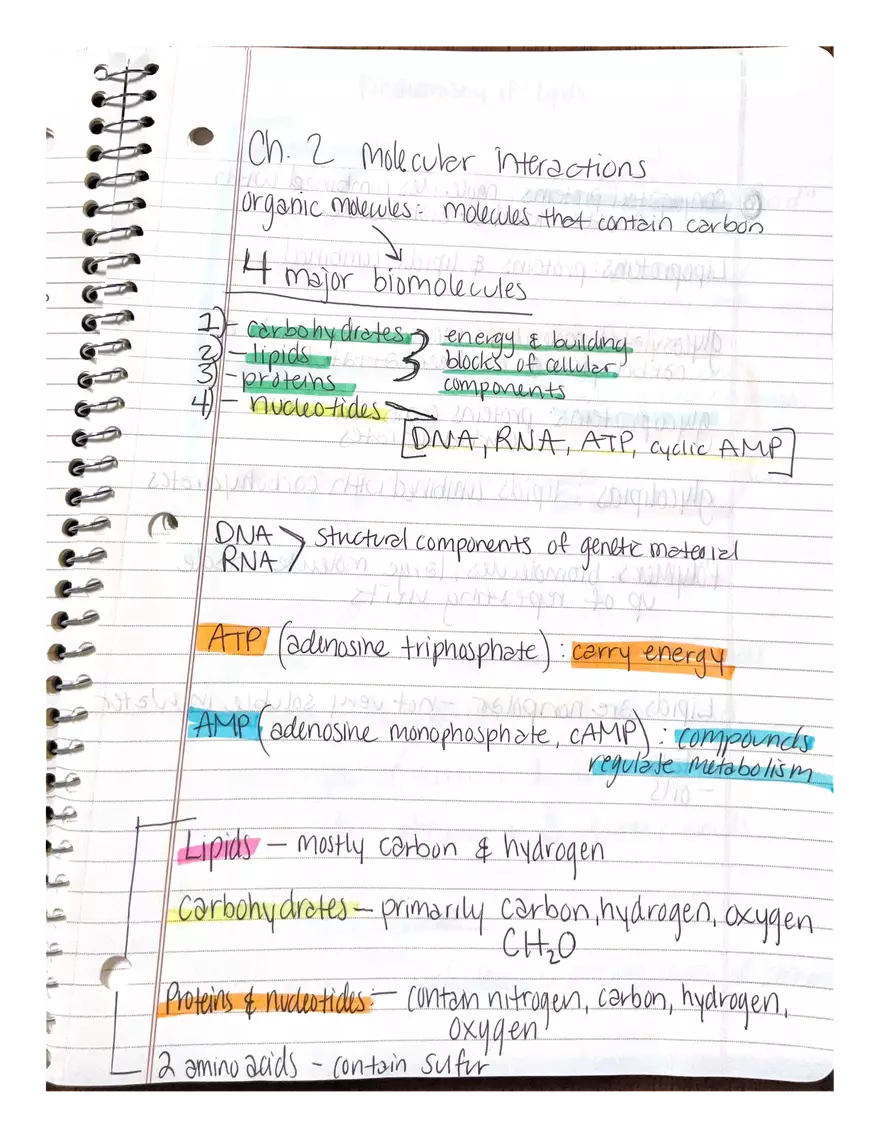 Ch. 2 Molecular interactions
organic molecules: molecules that contain carbon
4 major biomolecules
1) - carbohydrates energy & building
2) - lipids blocks of cellular
3) - proteins components
4) - nucleotides
[DNA, RNA, ATP, cyclic AMP]
DNA structural components of genetic material
RNA
ATP (adenosine triphosphate) : carry energy
AMP (adenosine monophosphate, cAMP) : compounds
regulate metabolism
Lipids - mostly carbon & hydrogen
Carbohydrates - primarily carbon, hydrogen, oxygen
CH₂O
Proteins & nucleotides: - contain nitrogen, carbon, hydrogen,
oxygen
2 amino acids - contain sulfur